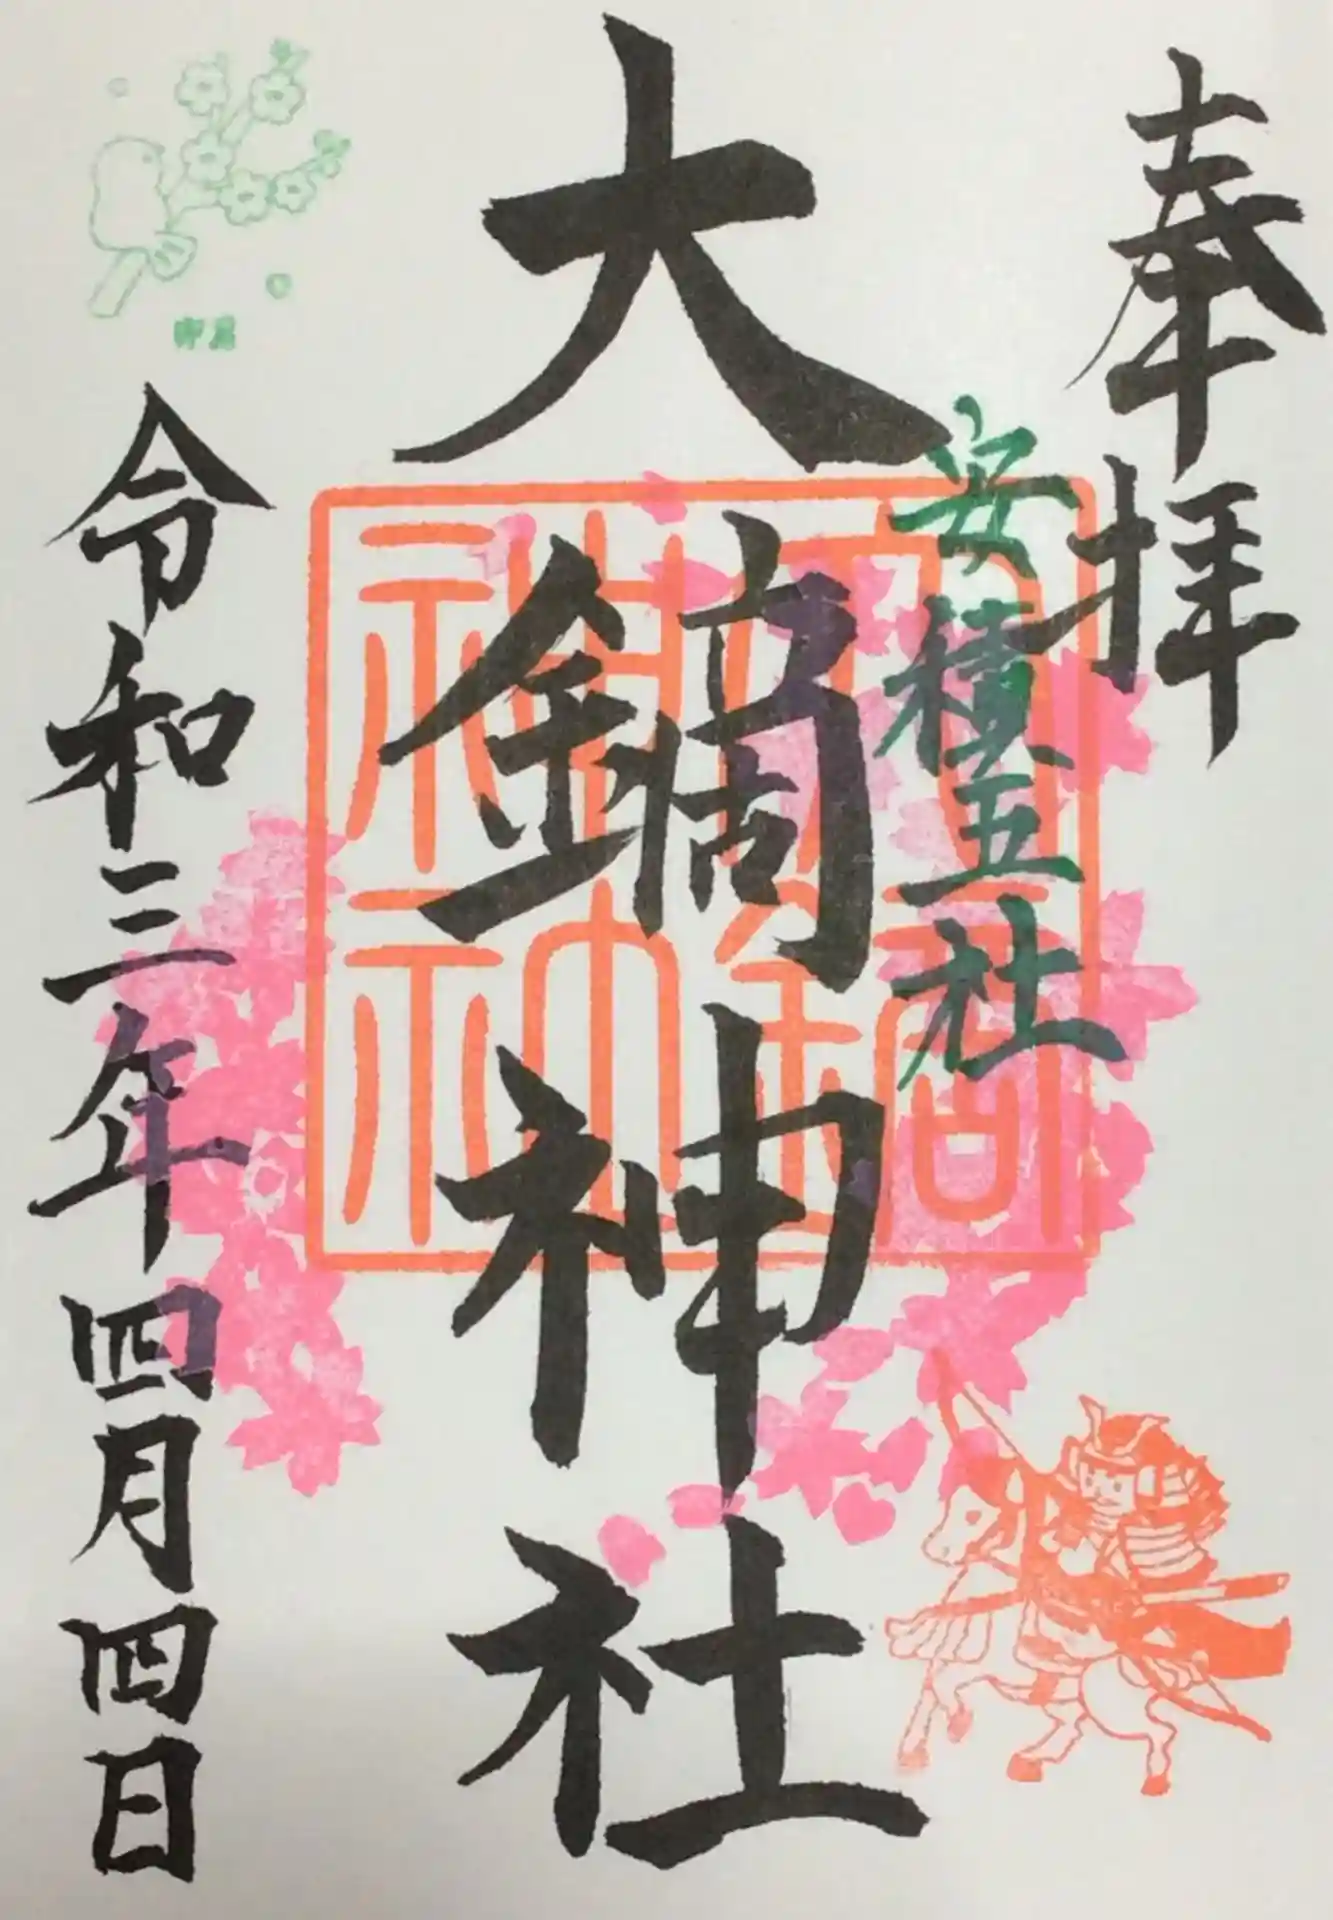 奉拝
安積五社
大鏑神社
大鏑神社
令和三年四月四日
卯月